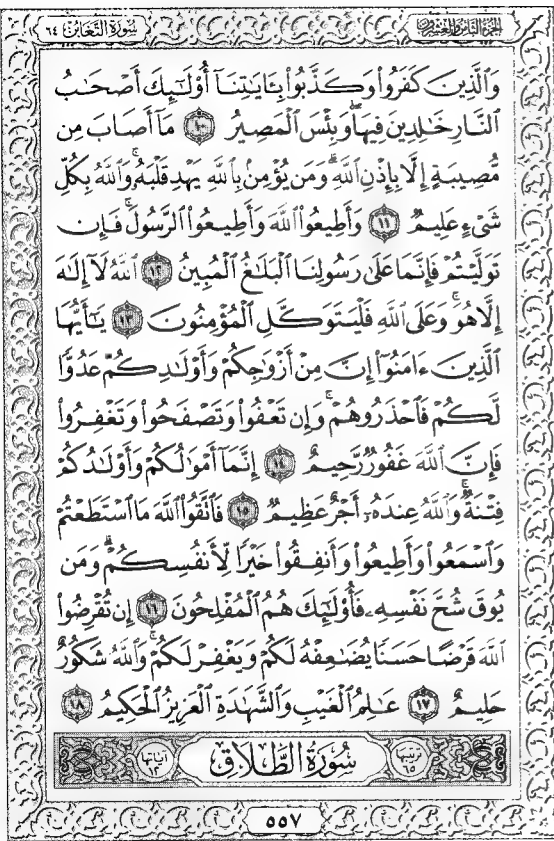 الجزء الثامن والعشرون سورة التغابن ٦٤
وَالَّذِينَ كَفَرُوا۟ وَكَذَّبُوا۟ بِـَٔايَـٰتِنَآ أُو۟لَـٰٓئِكَ أَصْحَـٰبُ
ٱلنَّارِ خَـٰلِدِينَ فِيهَا ۖ وَبِئْسَ ٱلْمَصِيرُ ١٠ مَآ أَصَابَ مِن
مُّصِيبَةٍ إِلَّا بِإِذْنِ ٱللَّهِ ۗ وَمَن يُؤْمِنۢ بِٱللَّهِ يَهْدِ قَلْبَهُۥ ۚ وَٱللَّهُ بِكُلِّ
شَىْءٍ عَلِيمٌ ١١ وَأَطِيعُوا۟ ٱللَّهَ وَأَطِيعُوا۟ ٱلرَّسُولَ ۚ فَإِن
تَوَلَّيْتُمْ فَإِنَّمَا عَلَىٰ رَسُولِنَا ٱلْبَلَـٰغُ ٱلْمُبِينُ ١٢ ٱللَّهُ لَآ إِلَـٰهَ
إِلَّا هُوَ ۚ وَعَلَى ٱللَّهِ فَلْيَتَوَكَّلِ ٱلْمُؤْمِنُونَ ١٣ يَـٰٓأَيُّهَا
ٱلَّذِينَ ءَامَنُوٓا۟ إِنَّ مِنْ أَزْوَٰجِكُمْ وَأَوْلَـٰدِكُمْ عَدُوًّا
لَّكُمْ فَٱحْذَرُوهُمْ ۚ وَإِن تَعْفُوا۟ وَتَصْفَحُوا۟ وَتَغْفِرُوا۟
فَإِنَّ ٱللَّهَ غَفُورٌ رَّحِيمٌ ١٤ إِنَّمَآ أَمْوَٰلُكُمْ وَأَوْلَـٰدُكُمْ
فِتْنَةٌ ۚ وَٱللَّهُ عِندَهُۥٓ أَجْرٌ عَظِيمٌ ١٥ فَٱتَّقُوا۟ ٱللَّهَ مَا ٱسْتَطَعْتُمْ
وَٱسْمَعُوا۟ وَأَطِيعُوا۟ وَأَنفِقُوا۟ خَيْرًا لِّأَنفُسِكُمْ ۗ وَمَن
يُوقَ شُحَّ نَفْسِهِۦ فَأُو۟لَـٰٓئِكَ هُمُ ٱلْمُفْلِحُونَ ١٦ إِن تُقْرِضُوا۟
ٱللَّهَ قَرْضًا حَسَنًا يُضَـٰعِفْهُ لَكُمْ وَيَغْفِرْ لَكُمْ ۚ وَٱللَّهُ شَكُورٌ
حَلِيمٌ ١٧ عَـٰلِمُ ٱلْغَيْبِ وَٱلشَّهَـٰدَةِ ٱلْعَزِيزُ ٱلْحَكِيمُ ١٨
ترتيبها ٦٥ سُورَةُ الطَّلَاقِ آياتها ١٢
٥٥٧